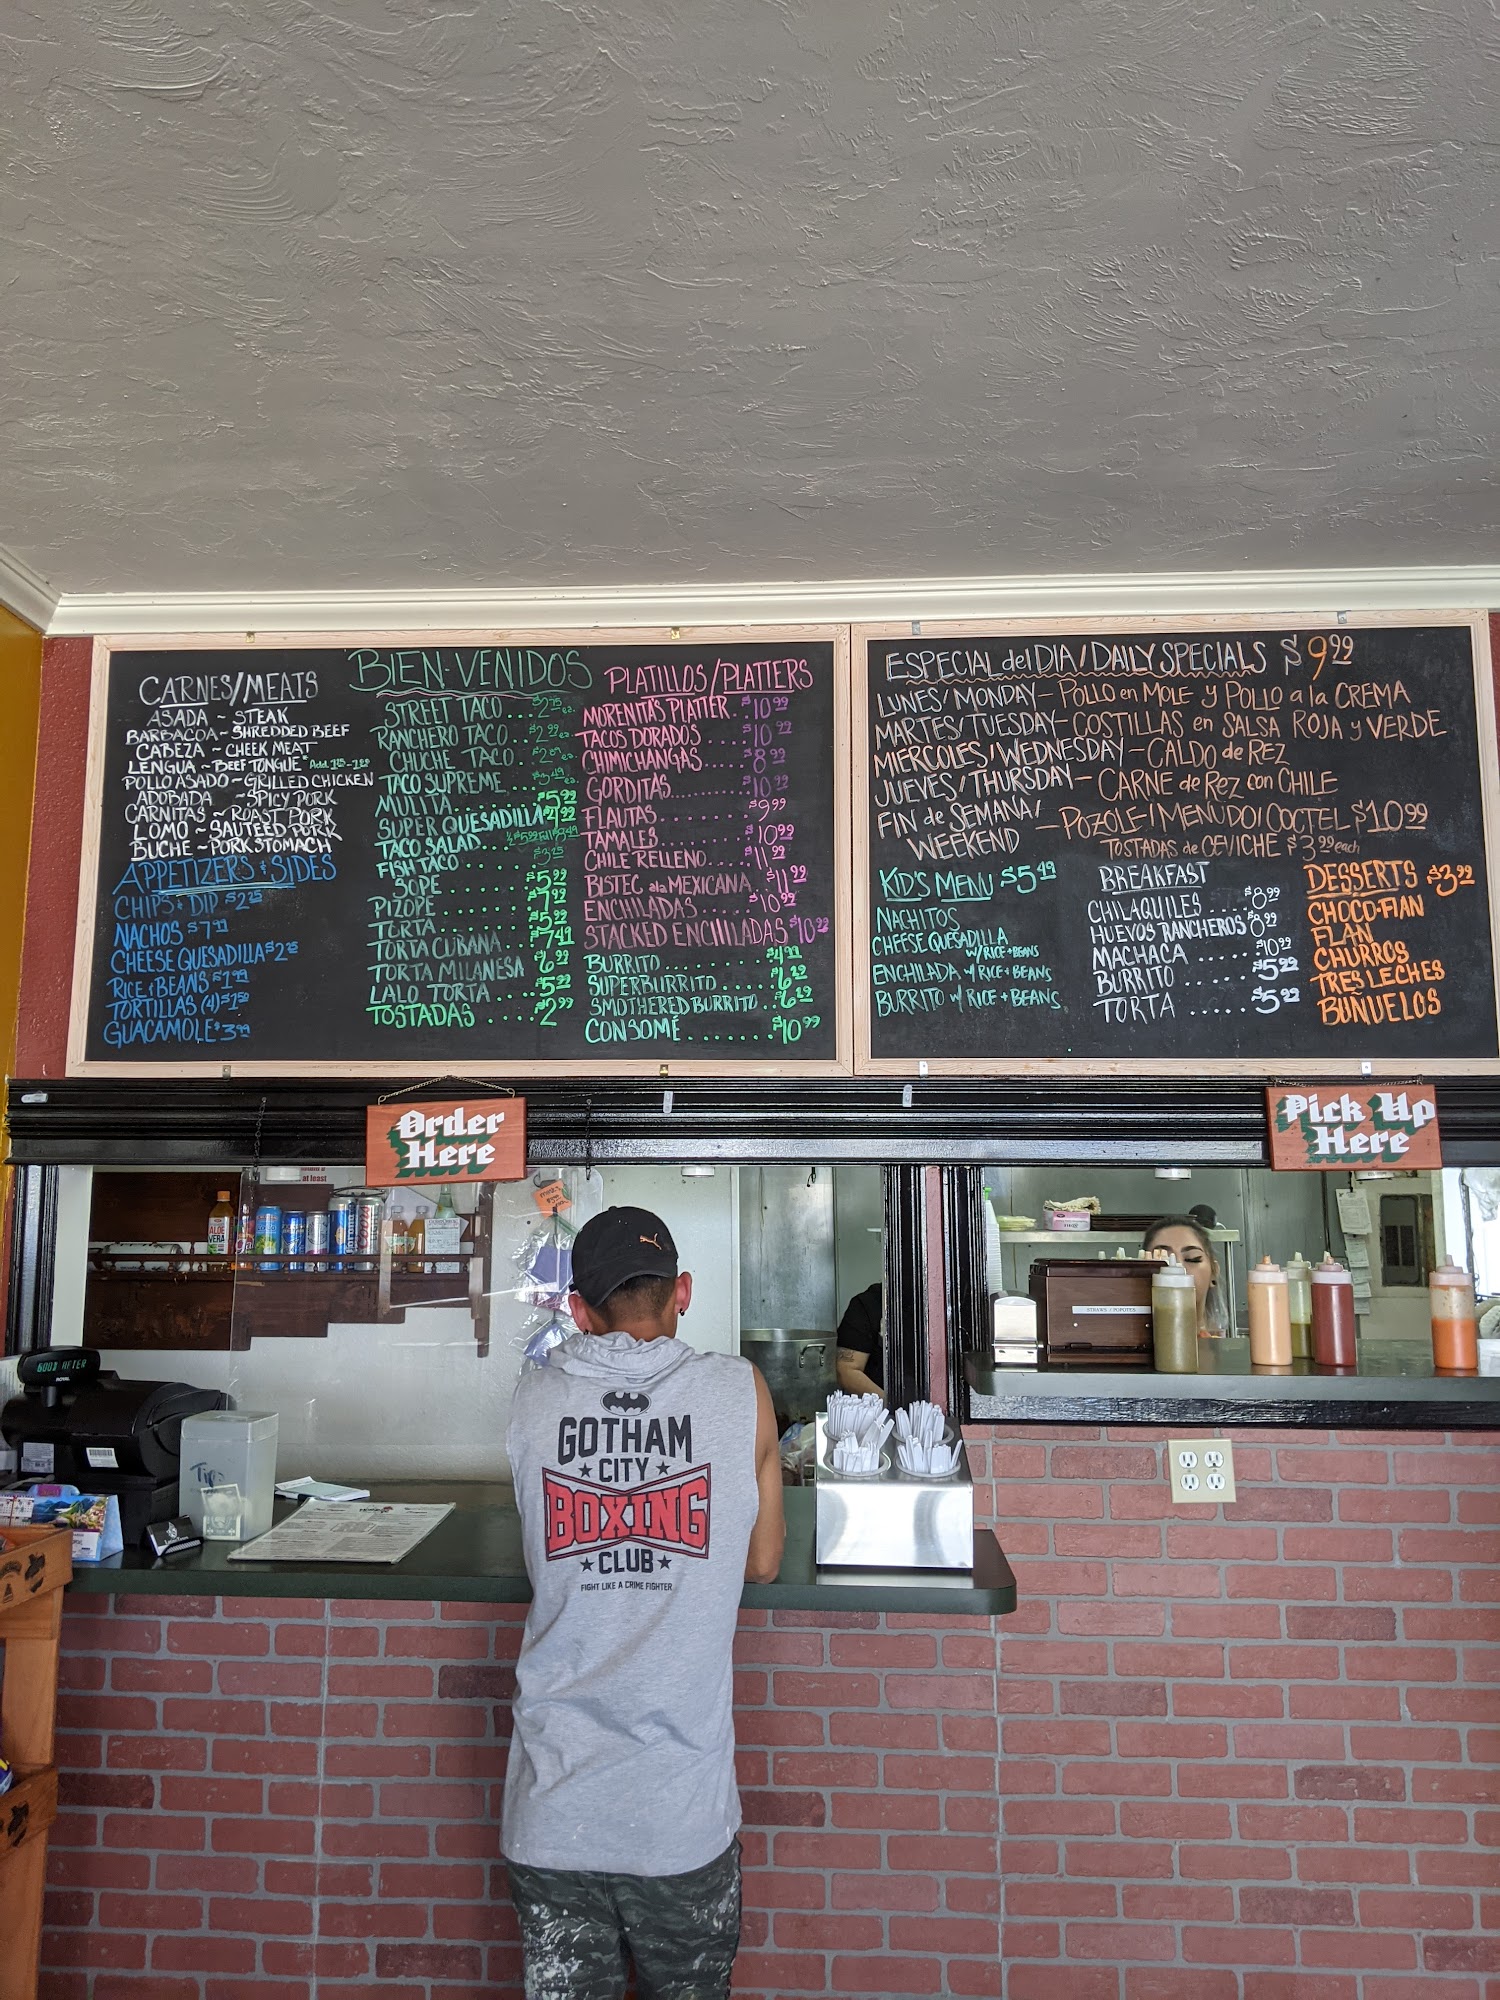 CARNES/MEATS
ASADA ~ STEAK
BARBACOA ~ SHREDDED BEEF
CABEZA ~ CHEEK MEAT
LENGUA ~ BEEF TONGUE*
POLLO ASADO ~ GRILLED CHICKEN
ADOBADA ~ SPICY PORK
CARNITAS ~ ROAST PORK
LOMO ~ SAUTEED PORK
BUCHE ~ PORK STOMACH
APPETIZERS & SIDES
CHIPS & DIP $2.25
NACHOS $7.99
CHEESE QUESADILLA $2.75
RICE & BEANS $1.99
TORTILLAS (4) $1.50
GUACAMOLE $3.99
BIEN-VENIDOS
STREET TACO... $2.75 ea.
RANCHERO TACO.. $2.99 ea.
CHUCHE TACO...
TACO SUPREME... $3.49 ea.
MULITA......... $5.99
SUPER QUESADILLA $4.99
TACO SALAD
FISH TACO..... $3.25
SOPE....... $5.99
PIZOPE..... $7.99
TORTA...... $5.99
TORTA CUBANA.. $7.49
TORTA MILANESA $6.99
LALO TORTA.... $5.99
TOSTADAS..... $2.99
PLATILLOS/PLATTERS
MORENITA'S PLATTER.. $10.99
TACOS DORADOS..... $10.99
CHIMICHANGAS..... $8.99
GORDITAS........... $10.99
FLAUTAS.......... $9.99
TAMALES......... $10.99
CHILE RELLENO.... $11.99
BISTEC a la MEXICANA.. $11.99
ENCHILADAS...... $10.99
STACKED ENCHILADAS $10.99
BURRITO............ $4.99
SUPERBURRITO..... $6.29
SMOTHERED BURRITO.. $6.29
CONSOMÉ....... $10.99
ESPECIAL del DIA/DAILY SPECIALS $9.99
LUNES/MONDAY — POLLO en MOLE y POLLO a la CREMA
MARTES/TUESDAY — COSTILLAS en SALSA ROJA y VERDE
MIERCOLES/WEDNESDAY — CALDO de REZ
JUEVES/THURSDAY — CARNE de REZ con CHILE
FIN de SEMANA/
WEEKEND — POZOLE/MENUDO/COCTEL $10.99
TOSTADAS de CEVICHE $3.99 each
KID'S MENU $5.49
NACHITOS
CHEESE QUESADILLA
W/RICE + BEANS
ENCHILADA W/ RICE + BEANS
BURRITO W/ RICE + BEANS
BREAKFAST
CHILAQUILES .... $8.99
HUEVOS RANCHEROS $8.99
MACHACA ..... $10.99
BURRITO ..... $5.99
TORTA ..... $5.99
DESSERTS $3.99
CHOCO-FLAN
FLAN
CHURROS
TRES LECHES
BUÑUELOS
Order
Here
Pick Up
Here
at least
ALOE
VERA
STRAWS / POPOTES
GOOD AFTER
ROYAL
Tips
GOTHAM
CITY
BOXING
CLUB
FIGHT LIKE A CRIME FIGHTER